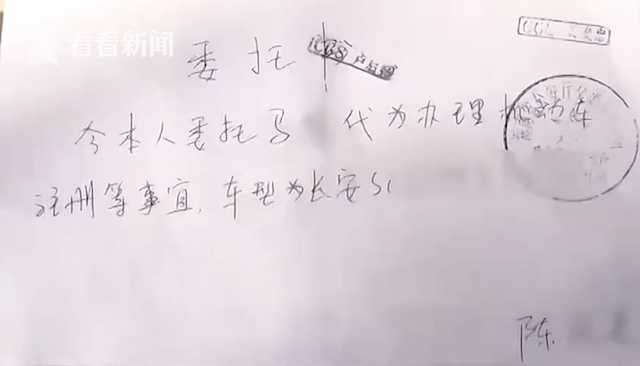 看看新闻
委托书
今本人委托马 代为办理机动车
注册等事宜，车型为长安SC
陈